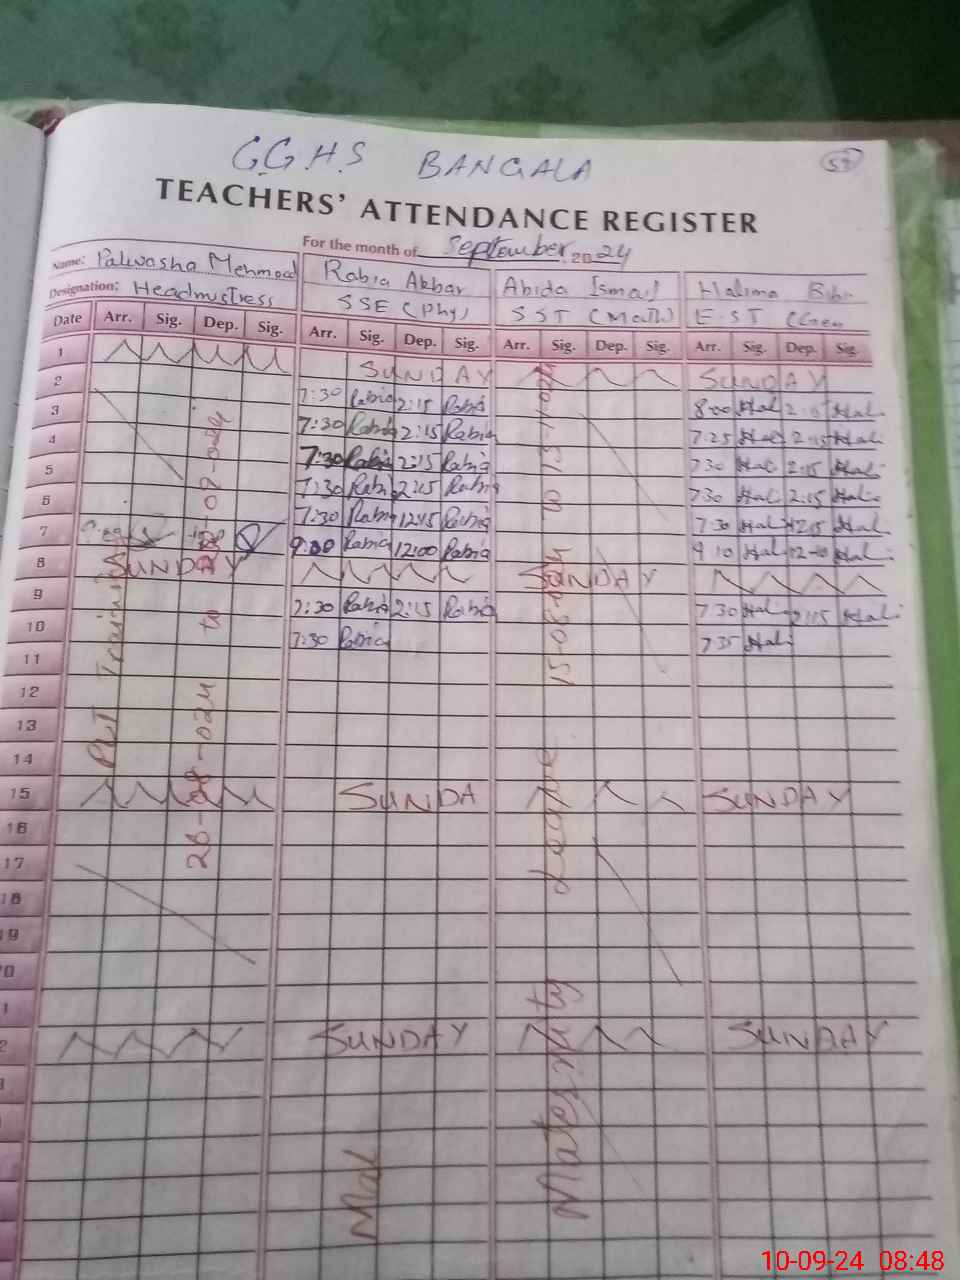 G.G.H.S BANGALA
TEACHERS' ATTENDANCE REGISTER
For the month of September 2024
Name: Palwasha Mehmood Rabia Akbar Abida Ismail Halima Bibi
Designation: Headmistress SSE (Phy) SST (Math) E.ST (Gen
Date Arr. Sig. Dep. Sig. Arr. Sig. Dep. Sig. Arr. Sig. Dep. Sig. Arr. Sig. Dep. Sig.
1 SUNDAY SUNDAY
2 7:30 Rabia 2:15 Rabia 8:00 Hal 2:15 Hal
3 7:30 Rabia 2:15 Rabia 7:25 Hal 2:15 Hal
4 7:30 Rabia 2:15 Rabia 7:30 Hal 2:15 Hal
5 7:30 Rabia 2:15 Rabia 7:30 Hal 2:15 Hal
6 7:30 Rabia 12:15 Rabia 7:30 Hal 12:15 Hal
7 9:00 Rabia 12:00 Rabia 9:10 Hal Hal
8 SUNDAY SUNDAY
9 7:30 Rabia 2:15 Rabia 7:30 Hal 2:15 Hal
10 7:30 Rabia 7:35 Hal
11
12
13
14
15 SUNDA SUNDAY
16
17
18
19
SUNDAY SUNDAY
Training
to
Maternity Leave 15-08-024 to
10-09-24 08:48